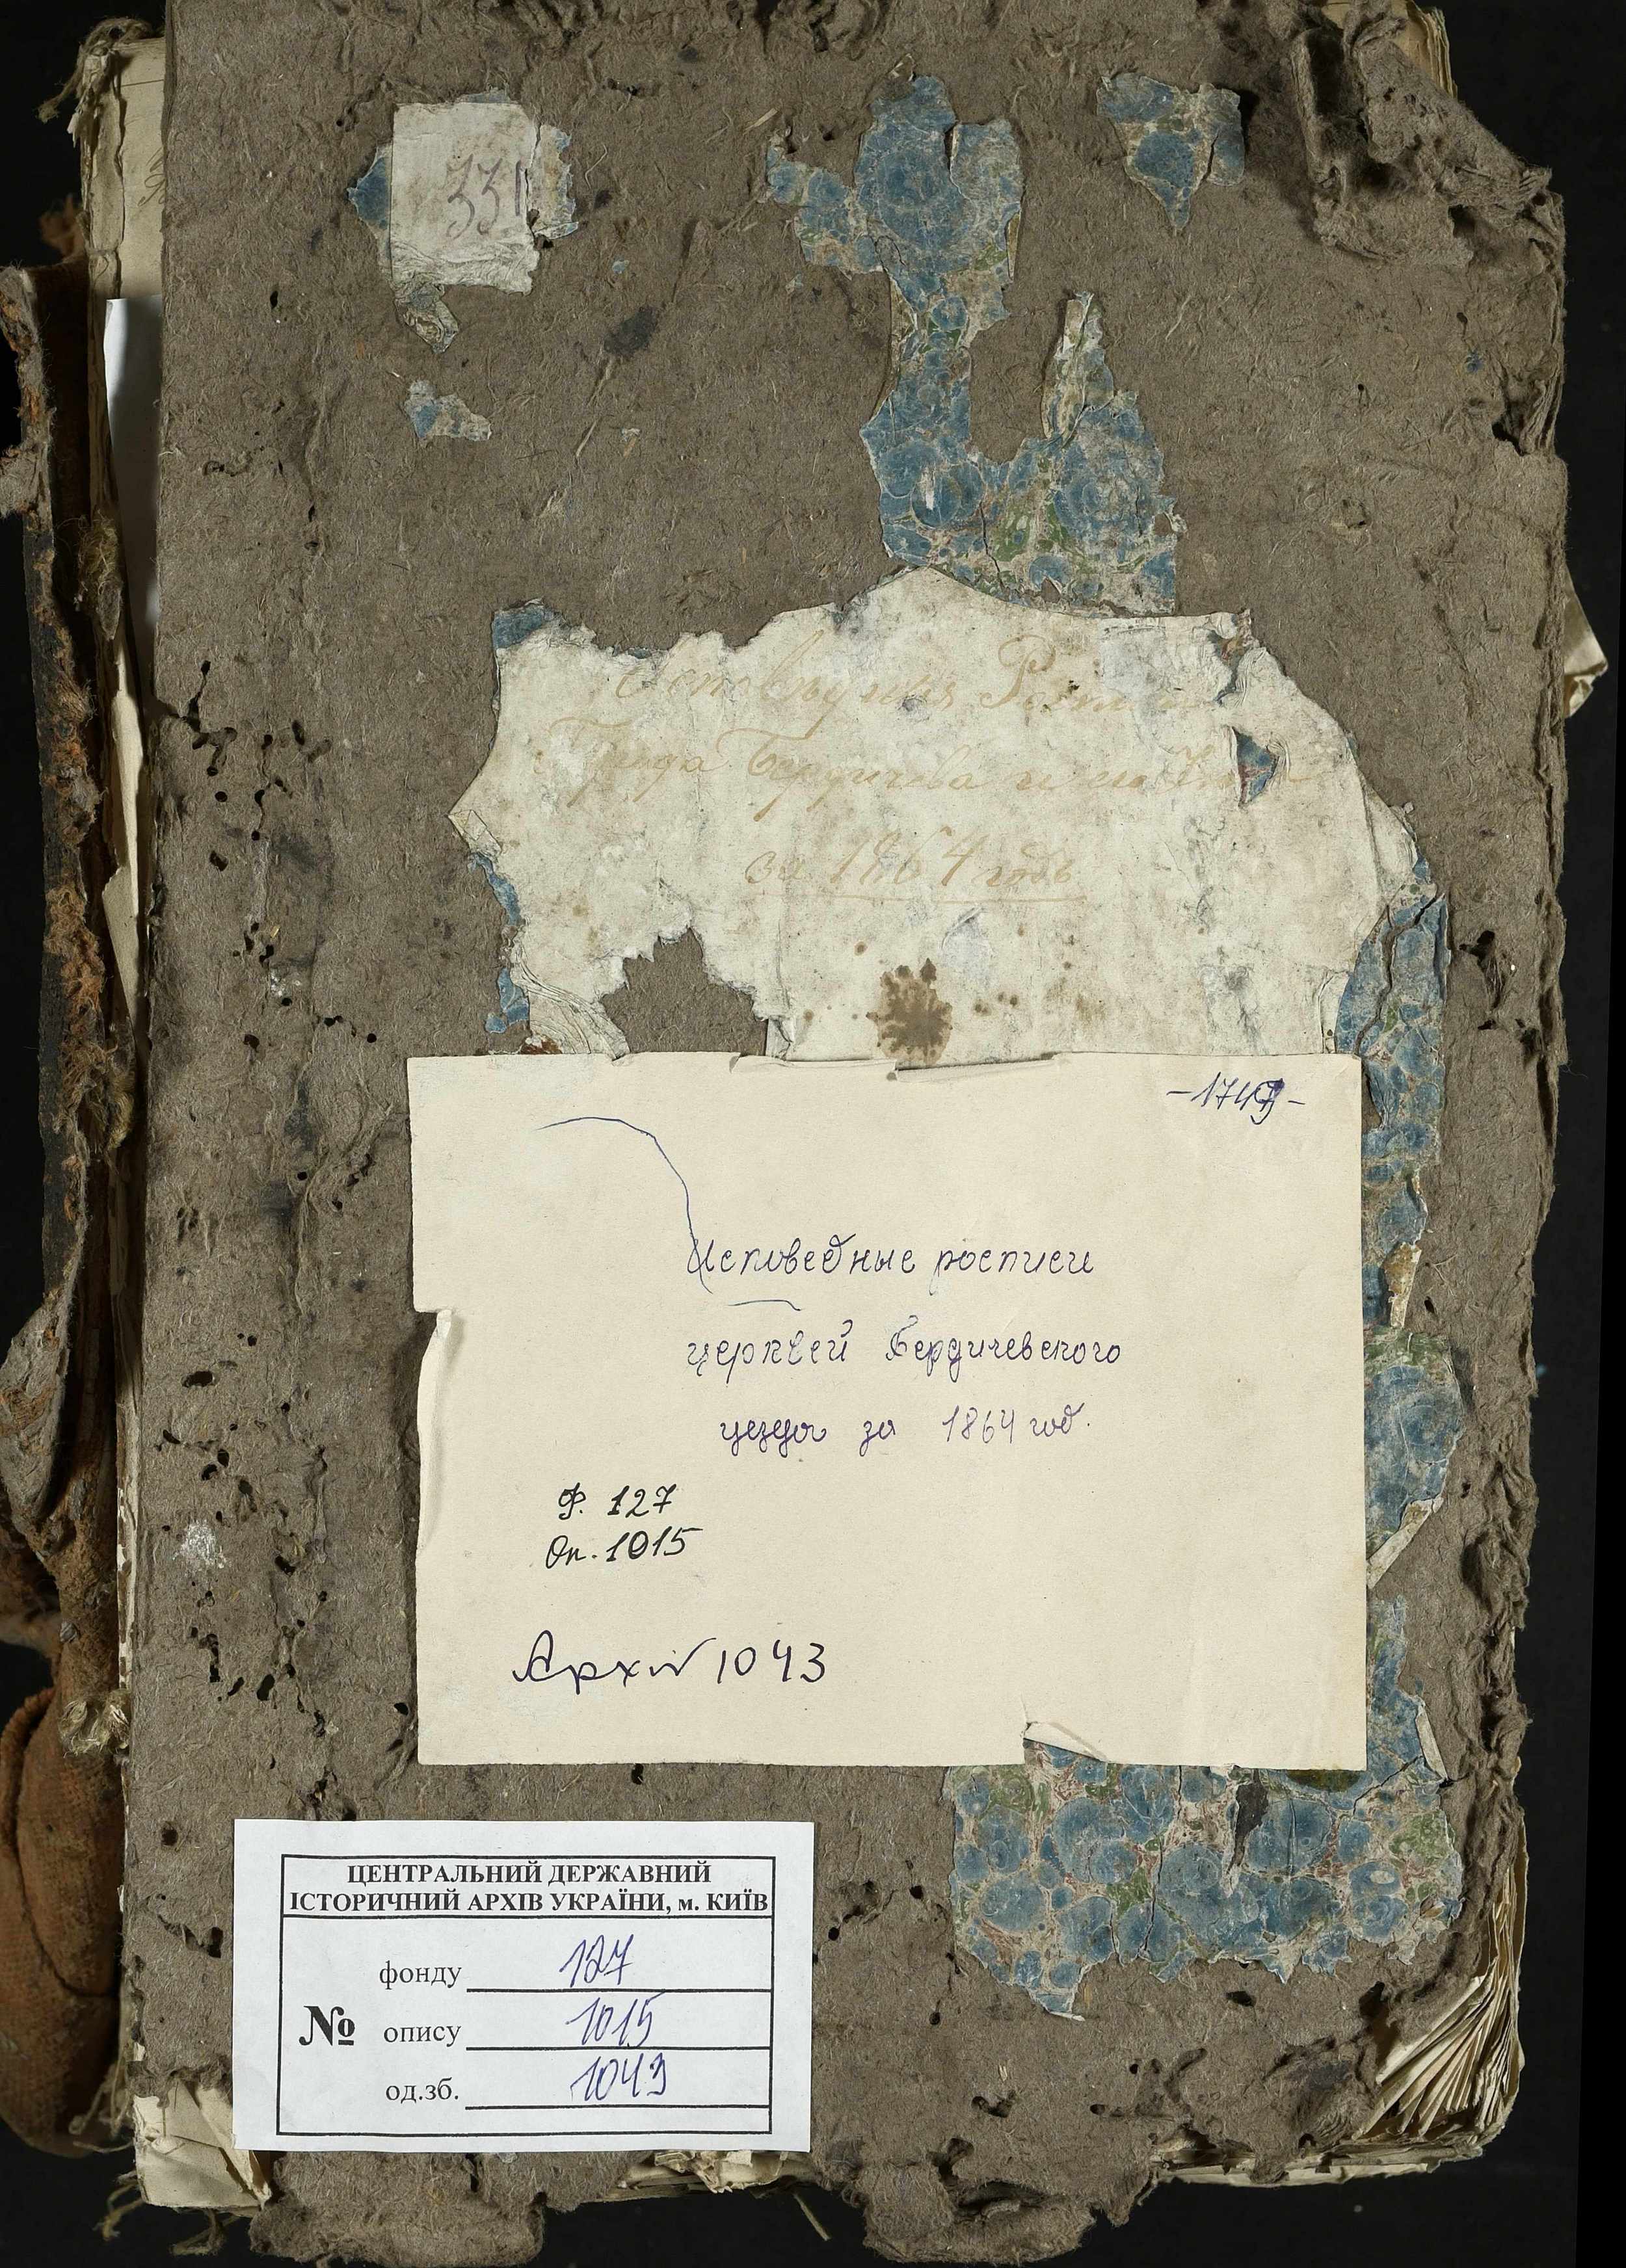 331
Исповѣдныя
Града Бердичева и
за 1864 годъ
Исповедные росписи
церквей Бердичевского
уезда за 1864 год.
Ф. 127
Оп. 1015
1043
ЦЕНТРАЛЬНИЙ ДЕРЖАВНИЙ
ІСТОРИЧНИЙ АРХІВ УКРАЇНИ, м. КИЇВ
фонду 127
№ опису 1015
од.зб. 1043